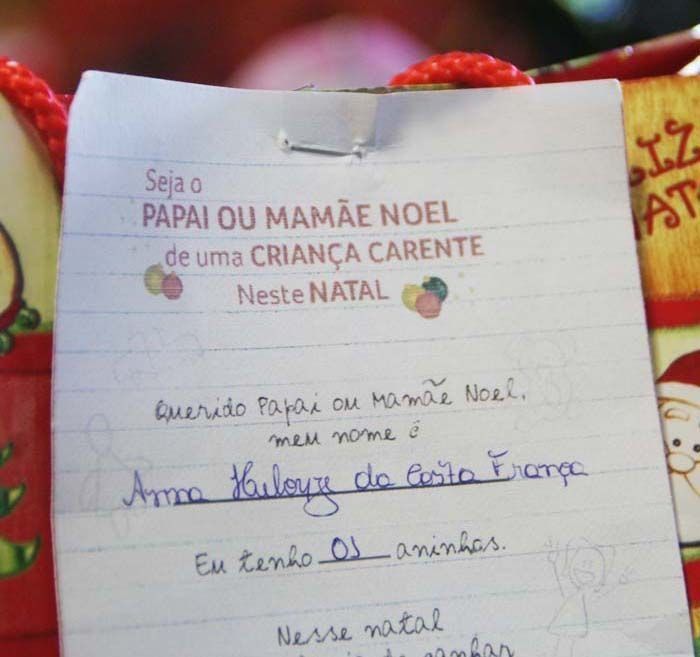 Seja o
PAPAI OU MAMÃE NOEL
de uma CRIANÇA CARENTE
Neste NATAL
Querido Papai ou Mamãe Noel,
meu nome é
Anna Heloyze da Costa França
Eu tenho 05 aninhos.
Nesse natal
de ganhar